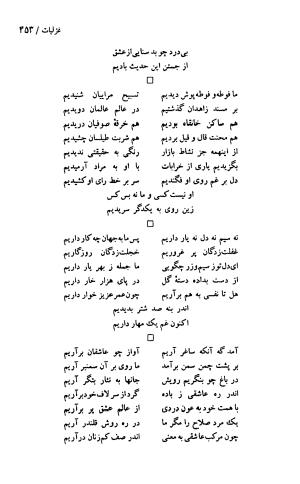 غزلیات / ۴۵۳
بی‌درد چو بد سنایی از عشق
از جستن این حدیث بادیم
ما فوطه و فوطه پوش دیدیم تسبیح مراییان شنیدیم
بر مسند زاهدان گذشتیم در عالم عالمان دویدیم
هم ساکن خانقاه بودیم هم خرقهٔ صوفیان دریدیم
هم محنت قال و قیل بردیم هم شربت طیلسان چشیدیم
از اینهمه جز نشاط بازار رنگی به حقیقتی ندیدیم
بگزیدیم یاری از خرابات با او به مراد آرمیدیم
دل بر غم روی او فگندیم سر بر خط رای او کشیدیم
او نیست کسی و ما نه بس کس
زین روی به یکدگر سریدیم
نه سیم نه دل نه یار داریم پس ما به جهان چه کار داریم
غفلت‌زدگان پر غروریم خجلت‌زدگان روزگاریم
ای دل تو ز سیم و زر چگویی ما جمله ز بهر یار داریم
از دست بداده دستهٔ گل در پای هزار خار داریم
هل تا نفسی به هم برآریم چون عمر عزیز خوار داریم
اندر بنه صد شتر بدیدیم
اکنون غم یک مهار داریم
آمد گه آنکه ساغر آریم آواز چو عاشقان برآریم
بر پشت چمن سمن برآمد ما روی بر آن سمنبر آریم
در باغ چو بنگریم رویش جانها به نثار بنگر آریم
اندر ره عاشقی ز باده گرد از سر لاف خود برآریم
با همت خود به عون دردی از عالم عشق پر برآریم
یک مرد صلاح را مگر ما در ره روش قلندر آریم
چون مرکب عاشقی به معنی اندر صف کم‌زنان درآریم